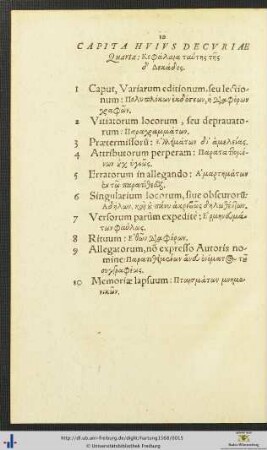 10
CAPITA HVIVS DECVRIAE
Quartæ: Κεφάλαια ταύτης τῆς
δ' Δεκάδος.
1 Caput, Variarum editionum, seu lectio-
num: Πολυπλόκων ἐκδόσεων, ἢ διαφόρων
γραφῶν.
2 Vitiatorum locorum, seu deprauato-
rum: Παραγραμμάτων.
3 Prætermissorū: ἐξ ἀμελείας.
4 Attributorum perperam:
οὐχ ὑγιῶς.
5 Erratorum in allegando: Ἁμαρτημάτων
ἐν τῷ
6 Singularium locorum, siue obscurorū:
Ἀδήλων, καὶ οὐ πάνυ ἀκριβῶς
7 Versorum parùm expeditè:
των φαύλως.
8 Rituum: Ἐθῶν διαφόρων.
9 Allegatorum, nō expresso Autoris no-
mine: Παρατιθεμένων ἄνευ ὀνόματος τοῦ
συγγραφέως.
10 Memoriæ lapsuum: Πταισμάτων μνημο-
νικῶν.
http://dl.ub.uni-freiburg.de/diglit/hartung1568/0015
© Universitätsbibliothek Freiburg
Baden-Württemberg